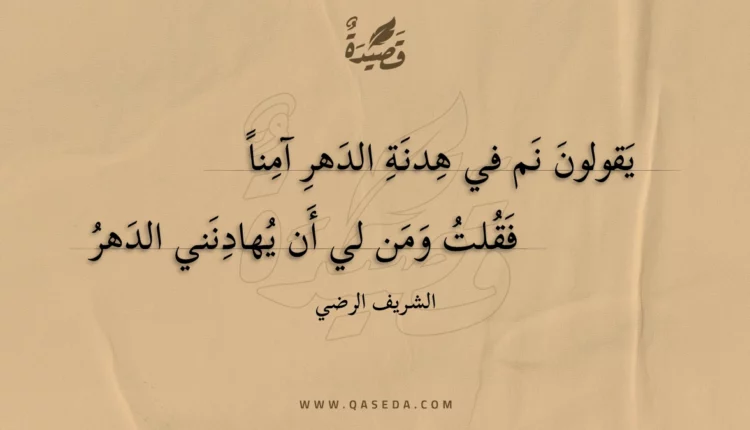 قَصِيدَةٌ
يَقولونَ نَم في هِدنَةِ الدَهرِ آمِناً
فَقُلتُ وَمَن لي أَن يُهادِنَني الدَهرُ
الشريف الرضي
WWW.QASEDA.COM